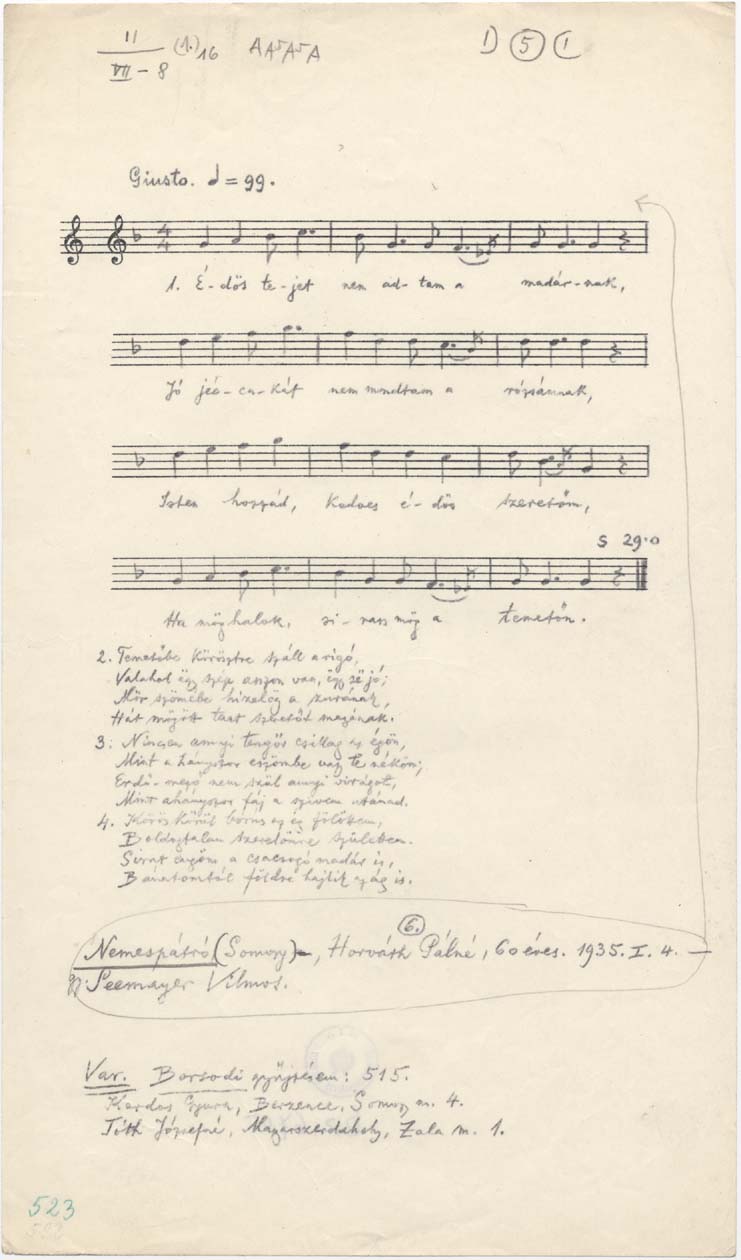 II (1.) 16 A A⁵ A⁵ A
VII - 8
1) 5 (1
Giusto. = 99.
4
4
1. É-dös te-jet nem ad-tam a madár-nak,
Jó jéc-ca-kát nem mondtam a rózsámnak,
Isten hozzád, kedves é-dös szeretőm,
S 29.0
Ha möghalok, si-rass mög a temetőn.
2. Temetőbe körösztre száll a rigó,
Valahol ëgy szép asszon van, ëgy së jó;
Mer szömébe hizelög a zurának,
Hát mögött tart szeretőt magának.
3. Nincsen annyi tengős csillag az égön,
Mint a hányszor eszömbe vagy te néköm;
Erdő-mező nem szül annyi virágot,
Mint ahányszor fáj a szivem utánad.
4. Körös körül borus az ég fölöttem,
Boldogtalan szeretőnre születtem.
Sirat engöm a csacsogó madár is,
Bánatomtól földre hajlik az ág is.
6.
Nemespátró (Somogy), Horváth Pálné, 60 éves. 1935. I. 4.
gy: Seemayer Vilmos.
Var. Borsodi gyűjtésem: 515.
Kardos Gyura, Berzence, Somogy m. 4.
Tóth Józsefné, Magyarszerdahely, Zala m. 1.
523